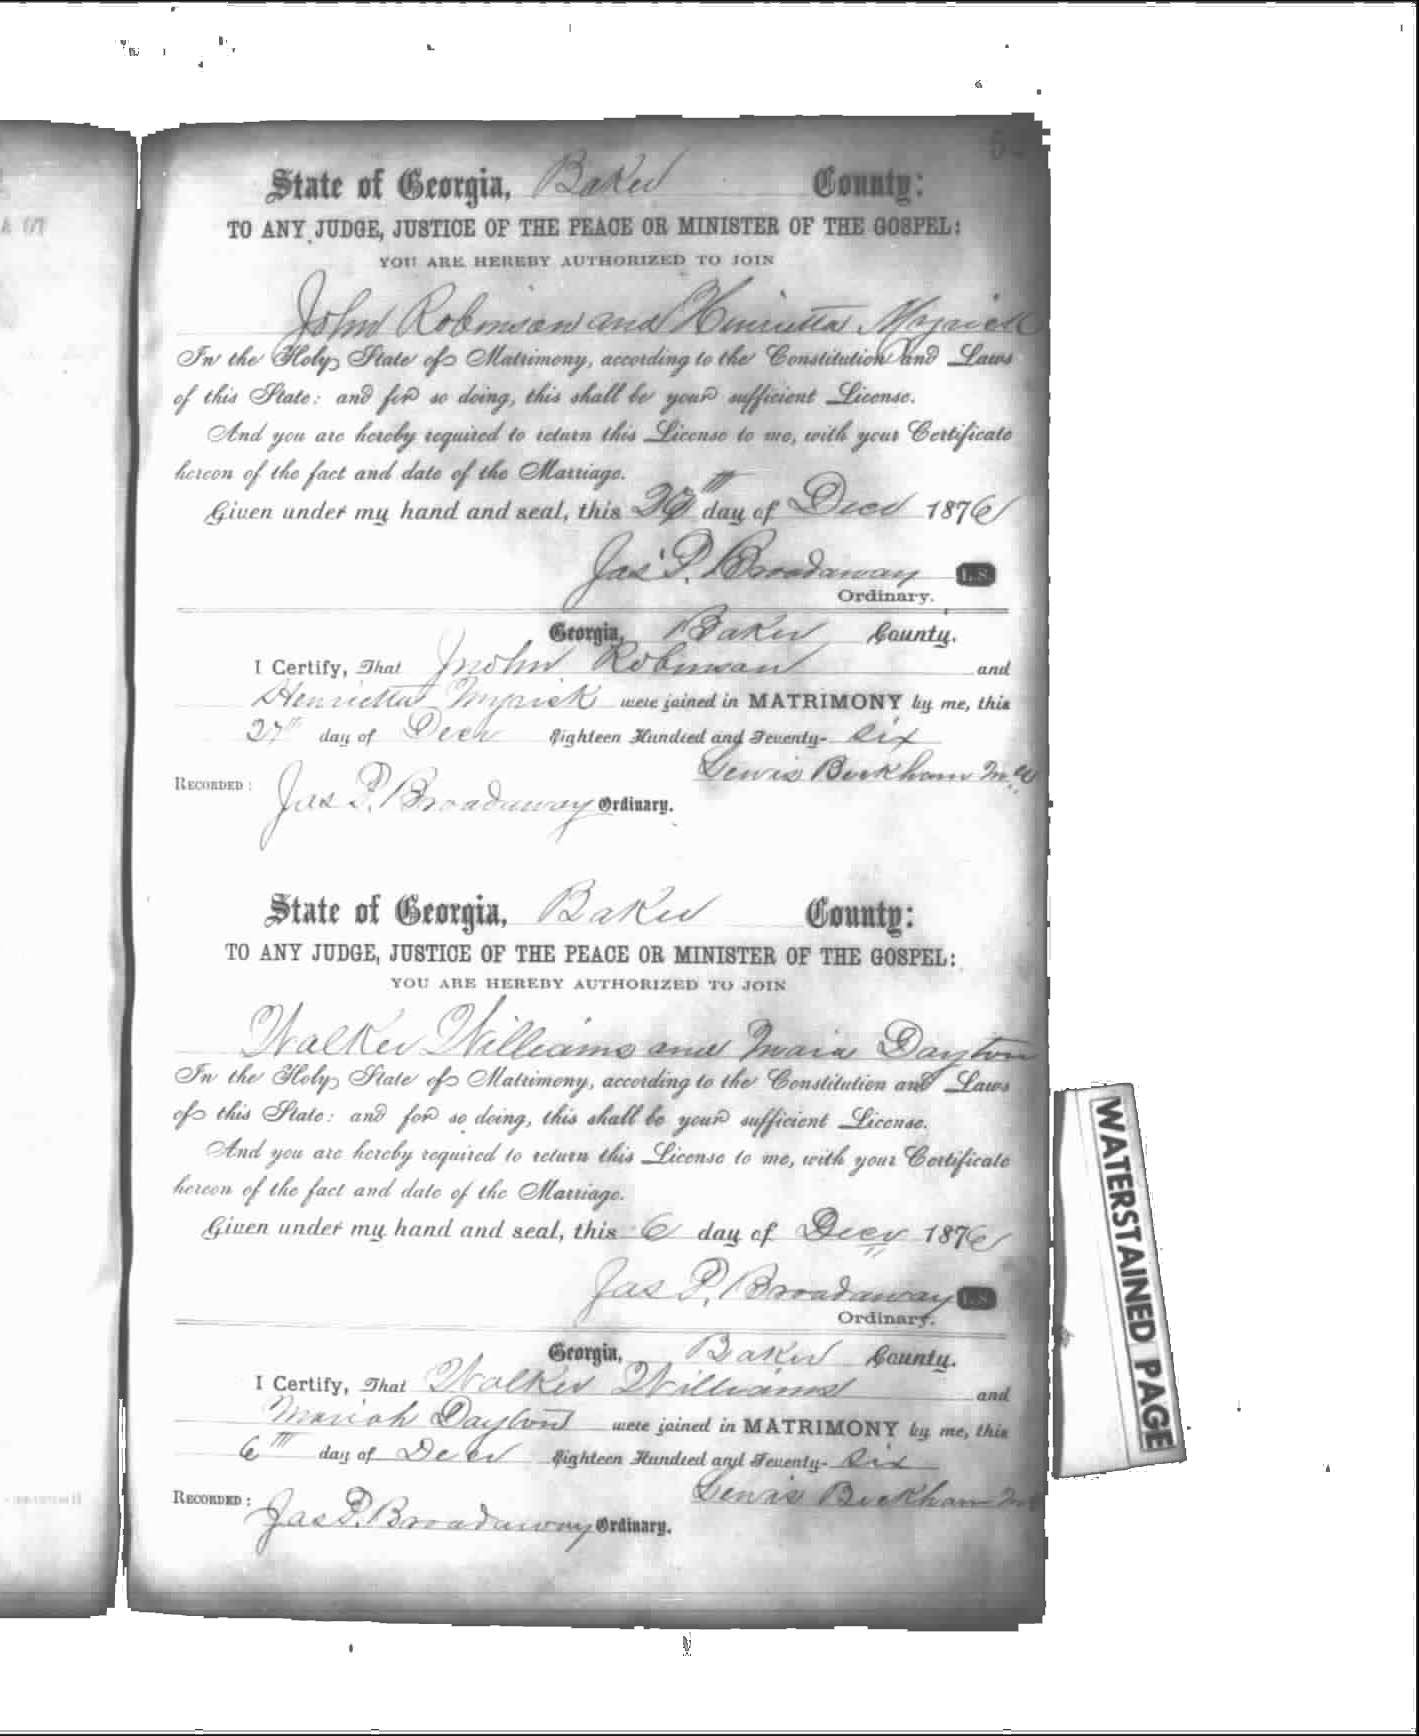 State of Georgia, Baker County:
TO ANY JUDGE, JUSTICE OF THE PEACE OR MINISTER OF THE GOSPEL:
YOU ARE HEREBY AUTHORIZED TO JOIN
John Robinson and Henrietta Myrick
In the Holy State of Matrimony, according to the Constitution and Laws
of this State: and for so doing, this shall be your sufficient License.
And you are hereby required to return this License to me, with your Certificate
hereon of the fact and date of the Marriage.
Given under my hand and seal, this th day of Decr 1876
Jas P. Broadaway L.S.
Ordinary.
Georgia, Baker County.
I Certify, That Jnohn Robinson and
Henrietta Myrick were joined in MATRIMONY by me, this
27th day of Decr Eighteen Hundred and Seventy- six
Lewis Beckham
RECORDED: Jas P. Broadaway Ordinary.
State of Georgia, Baker County:
TO ANY JUDGE, JUSTICE OF THE PEACE OR MINISTER OF THE GOSPEL:
YOU ARE HEREBY AUTHORIZED TO JOIN
Walker Williams and Maria Dayton
In the Holy State of Matrimony, according to the Constitution and Laws
of this State: and for so doing, this shall be your sufficient License.
And you are hereby required to return this License to me, with your Certificate
hereon of the fact and date of the Marriage.
Given under my hand and seal, this 6 day of Decr 1876
Jas P. Broadaway L.S.
Ordinary.
Georgia, Baker County.
I Certify, That Walker Williams and
Mariah Dayton were joined in MATRIMONY by me, this
6th day of Decr Eighteen Hundred and Seventy- six
Lewis Beckham
RECORDED: Jas P. Broadaway Ordinary.
WATERSTAINED PAGE